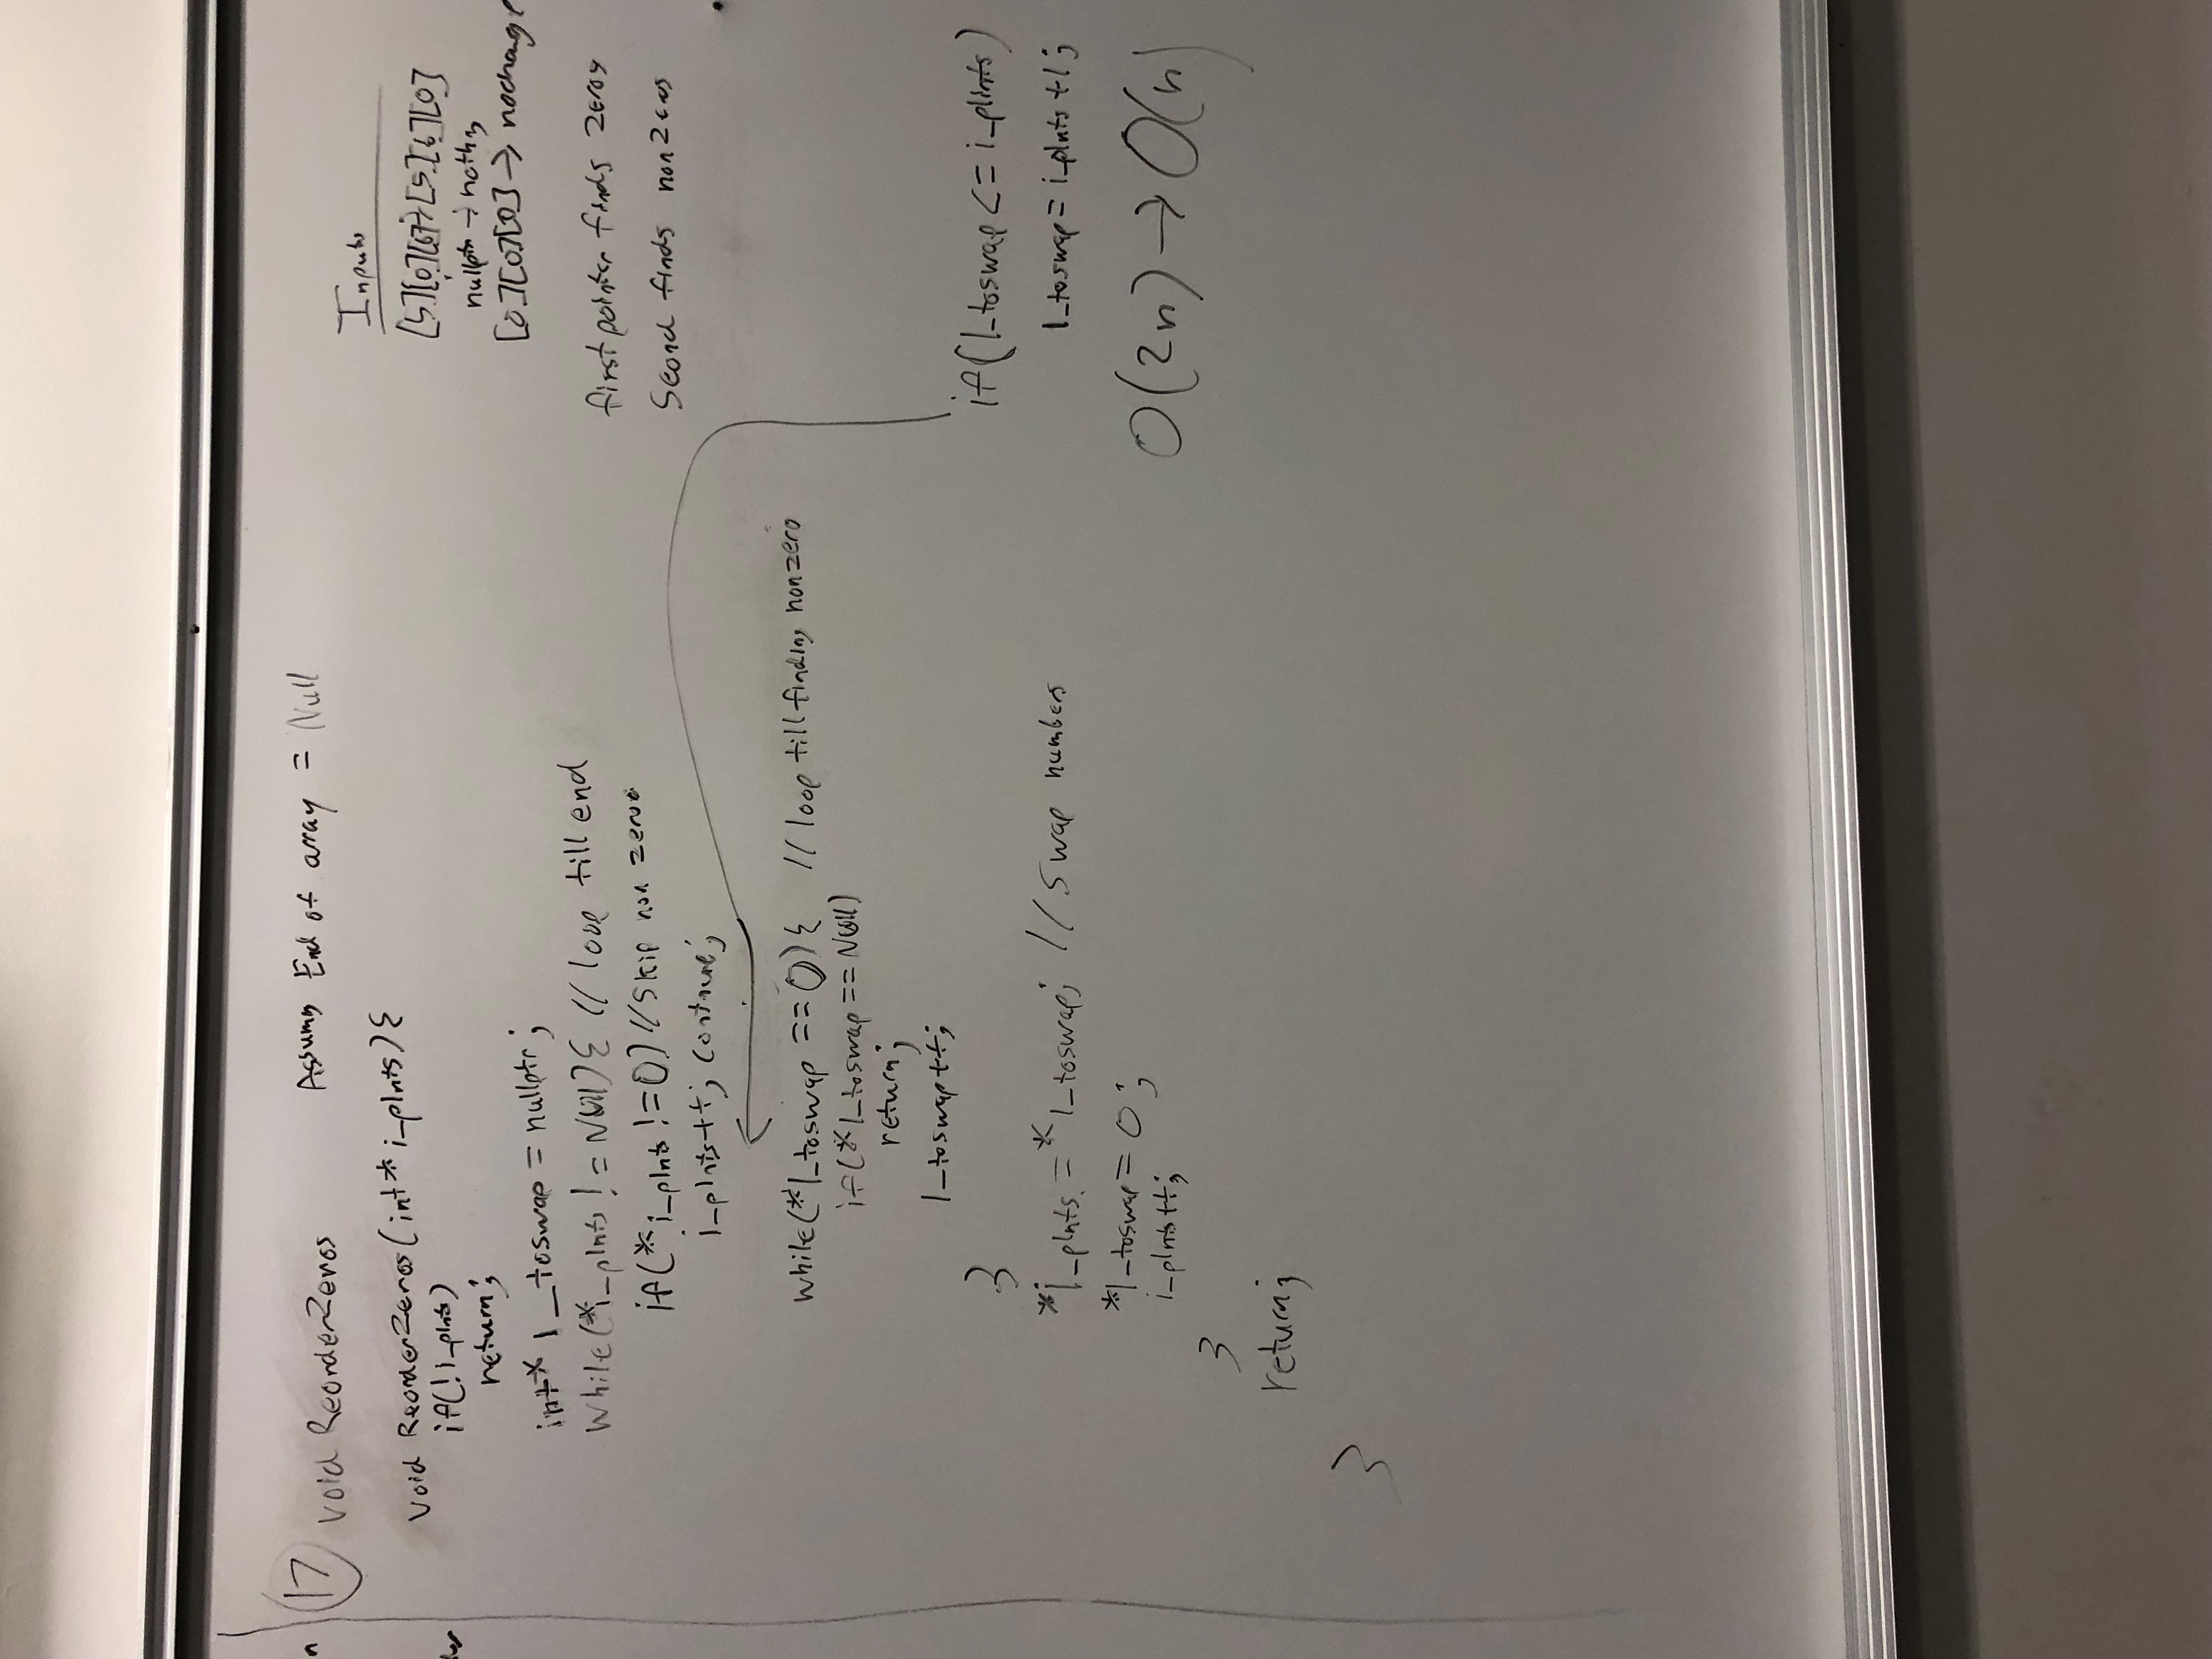 17
Void ReorderZeros
Assuming End of array = Null
Void ReorderZeros(int* i_pInts){
if(!i_pInts)
return;
int* l_toswap = nullptr;
While(*i_pInts != Null){ // loop till end
if(*i_pInts != 0) // Skip non zeros
i_pInts++; continue;
while(*l_toswap == 0){ // loop till finding nonzero
if(*l_toswap == Null)
return;
l_toswap++;
}
*i_pInts = *l_toswap; // Swap numbers
*l_toswap = 0;
i_pInts++;
}
return;
}
Inputs
[5][0][6]→[5][6][0]
nullptr → nothing
[0][0][0] → nochange
first pointer finds zeros
Second finds nonZeros
if(l_toswap <= i_pInts)
l_toswap = i_pInts+1;
O(2n) → O(n)